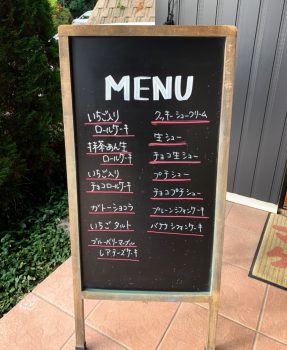 MENU
いちご入り
ロールケーキ
抹茶あん生
ロールケーキ
いちご入り
チョコロールケーキ
ガトーショコラ
いちごタルト
ブルーベリーマーブル
レアチーズケーキ
クッキーシュークリーム
生シュー
チョコ生シュー
プチシュー
チョコプチシュー
プレーンシフォンケーキ
バナナシフォンケーキ